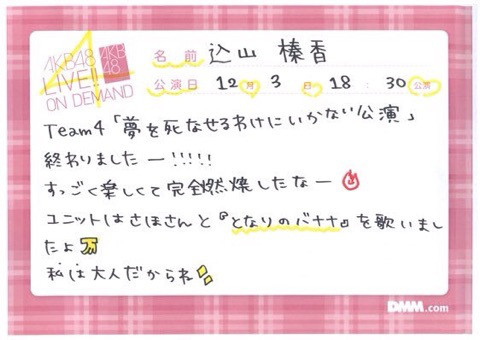 AKB48
LIVE!!
ON DEMAND
AKB
48
名前 込山 榛香
公演日 12月3日 18:30公演
Team4「夢を死なせるわけにいかない公演」
終わりましたー!!!!!
すっごく楽しくて完全燃焼したなー
ユニットはさほさんと『となりのバナナ』を歌いまし
たよ
私は大人だからね
DMM.com